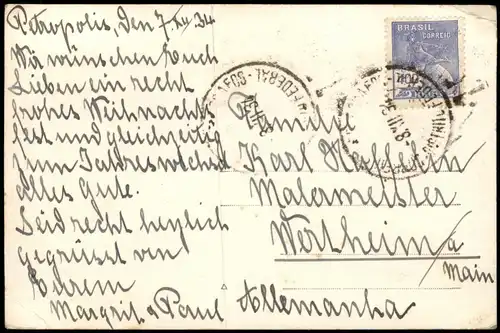 Petropolis, den 7/XII.34
Wir wünschen Euch
Lieben ein recht
frohes Weihnachts
fest und gleichzeitig
zum Jahreswechsel
alles Gute.
Seid recht herzlich
gegrüsst von
Eurem
Margrit & Paul
BRASIL
CORREIO
Familie
Karl
Malermeister
Wertheim a/
Main
Allemanha